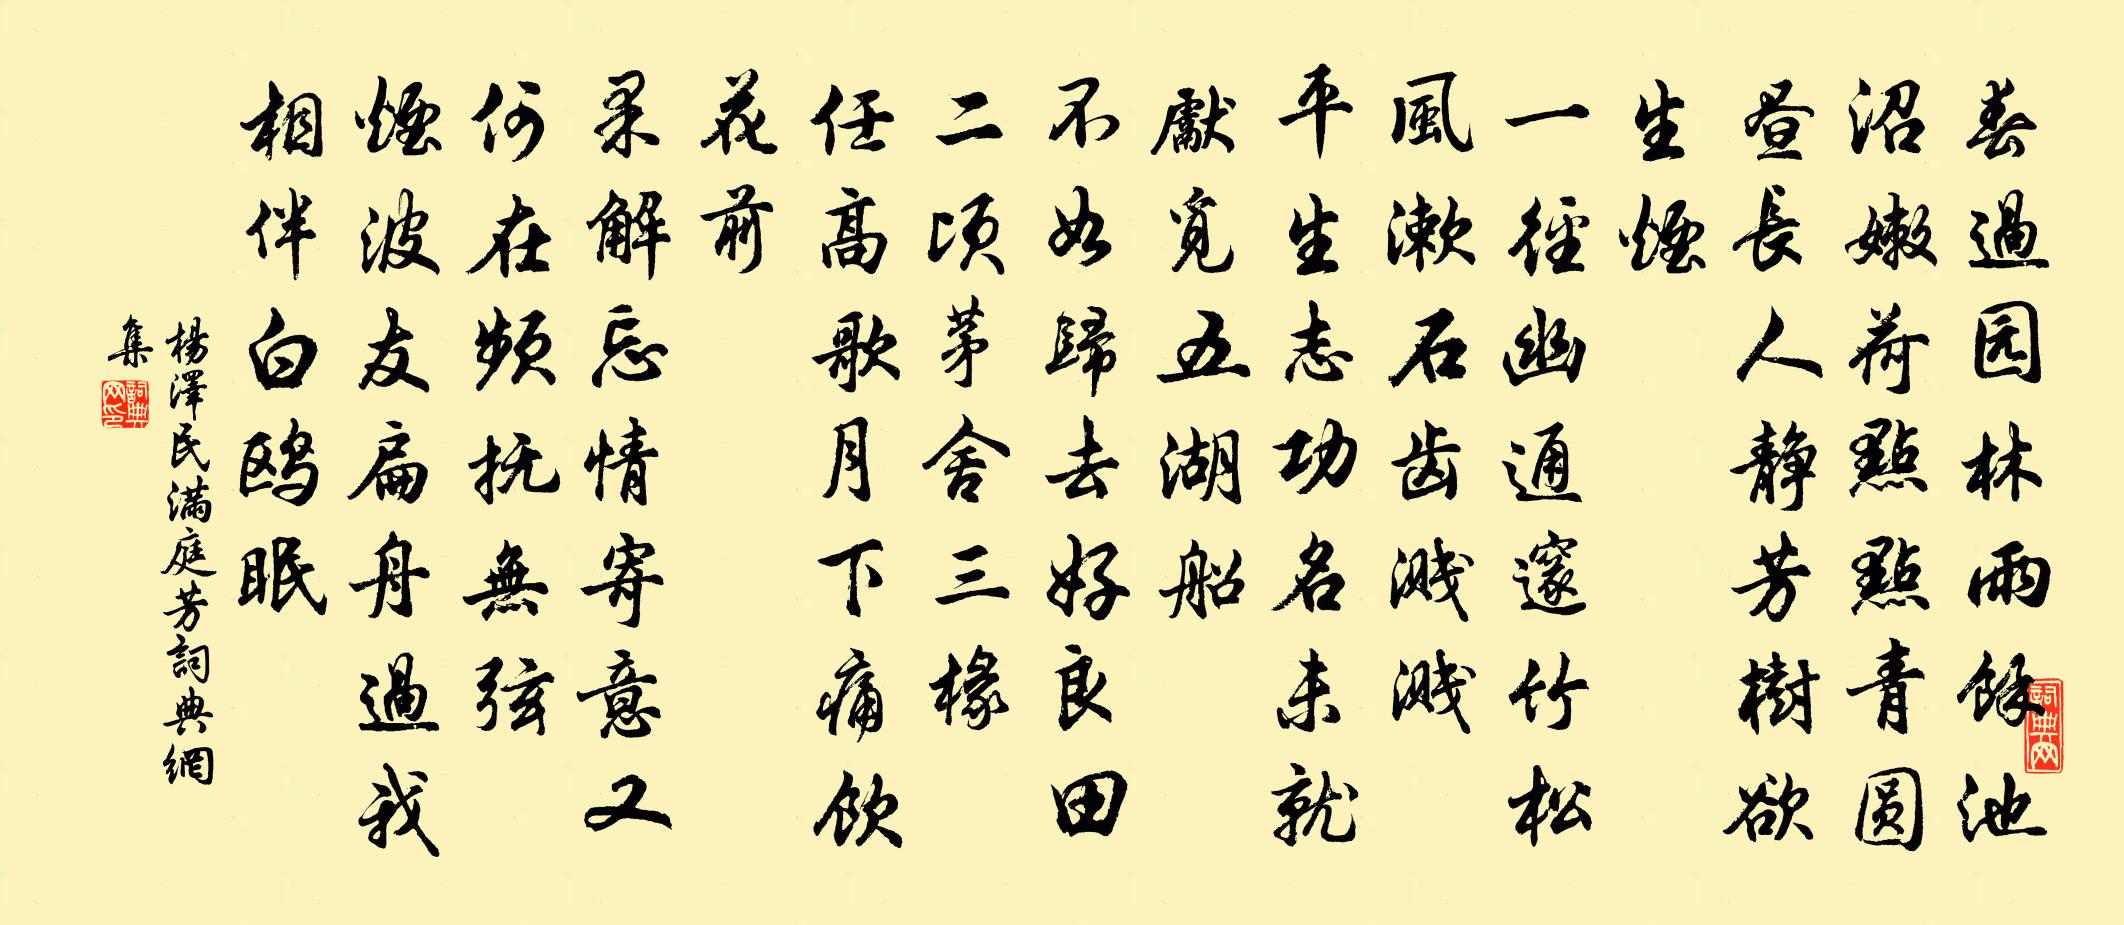 春過园林雨餘池
沼嫩荷點點青圆
昼長人静芳樹欲
生煙
一徑幽通邃竹松
風漱石齿溅溅
平生志功名未就
獻覓五湖船
不如歸去好良田
二頃茅舍三椽
任高歌月下痛飲
花前
果解忘情寄意又
何在频抚無弦
煙波友扁舟過我
相伴白鸥眠
楊澤民滿庭芳詞典網
集
詞典网印
詞典网